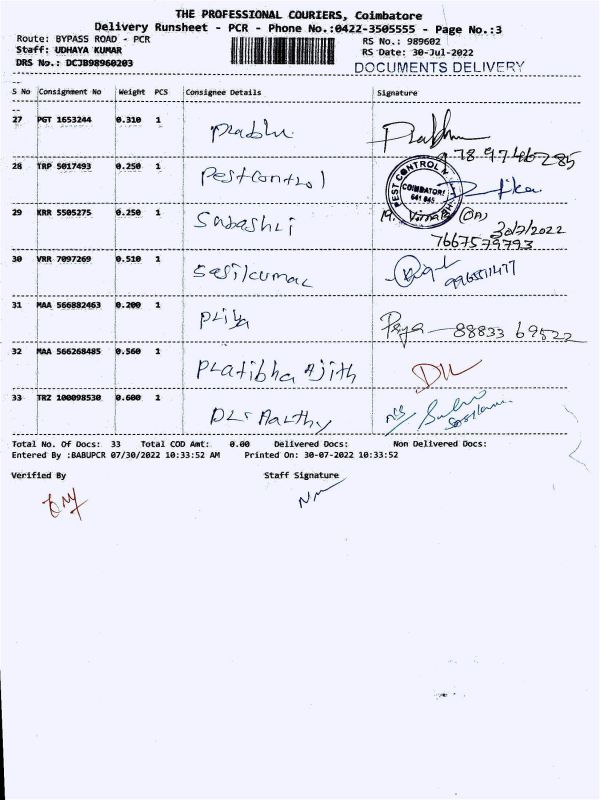 THE PROFESSIONAL COURIERS, Coimbatore
Delivery Runsheet - PCR - Phone No.:0422-3505555 - Page No.:3
Route: BYPASS ROAD - PCR RS No.: 989602
Staff: UDHAYA KUMAR RS Date: 30-Jul-2022
DRS No.: DCJB98960203 DOCUMENTS DELIVERY
S No Consignment No Weight PCS Consignee Details Signature
27 PGT 1653244 0.310 1 Prabhu Prabhu
28 TRP 5017493 0.250 1 Pestcontrol
PEST CONTROL
COIMBATORE
641 045
29 KRR 5505275 0.250 1 Sabashri 30/7/2022
7667579793
30 VRR 7097269 0.510 1 Sasikumar
31 MAA 566882463 0.200 1 Priya Priya - 88833 69522
32 MAA 566268485 0.560 1 Pratibha Ajith
33 TRZ 100098530 0.600 1 Dr Aarthy
Total No. Of Docs: 33 Total COD Amt: 0.00 Delivered Docs: Non Delivered Docs:
Entered By :BABUPCR 07/30/2022 10:33:52 AM Printed On: 30-07-2022 10:33:52
Verified By Staff Signature